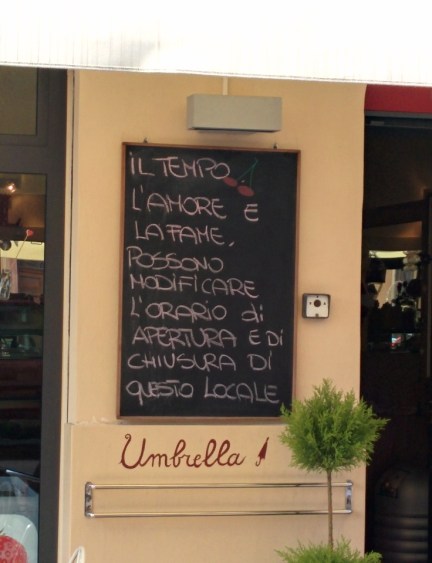 iL TEMPO
L'AMORE E
LA FAME,
POSSONO
MODIFICARE
L'ORARIO di
APERTURA E DI
CHIUSURA DI
QUESTO LOCALE
Umbrella